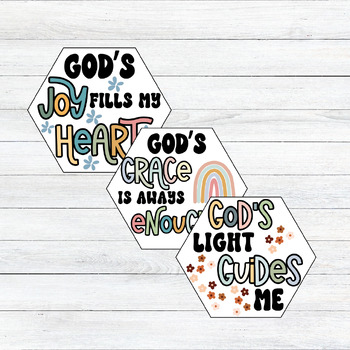 GOD'S
JOY FILLS MY
HEART
GOD'S
GRACE
IS AWAYS
eNOUG
GOD'S
LIGHT
GUiDES
ME